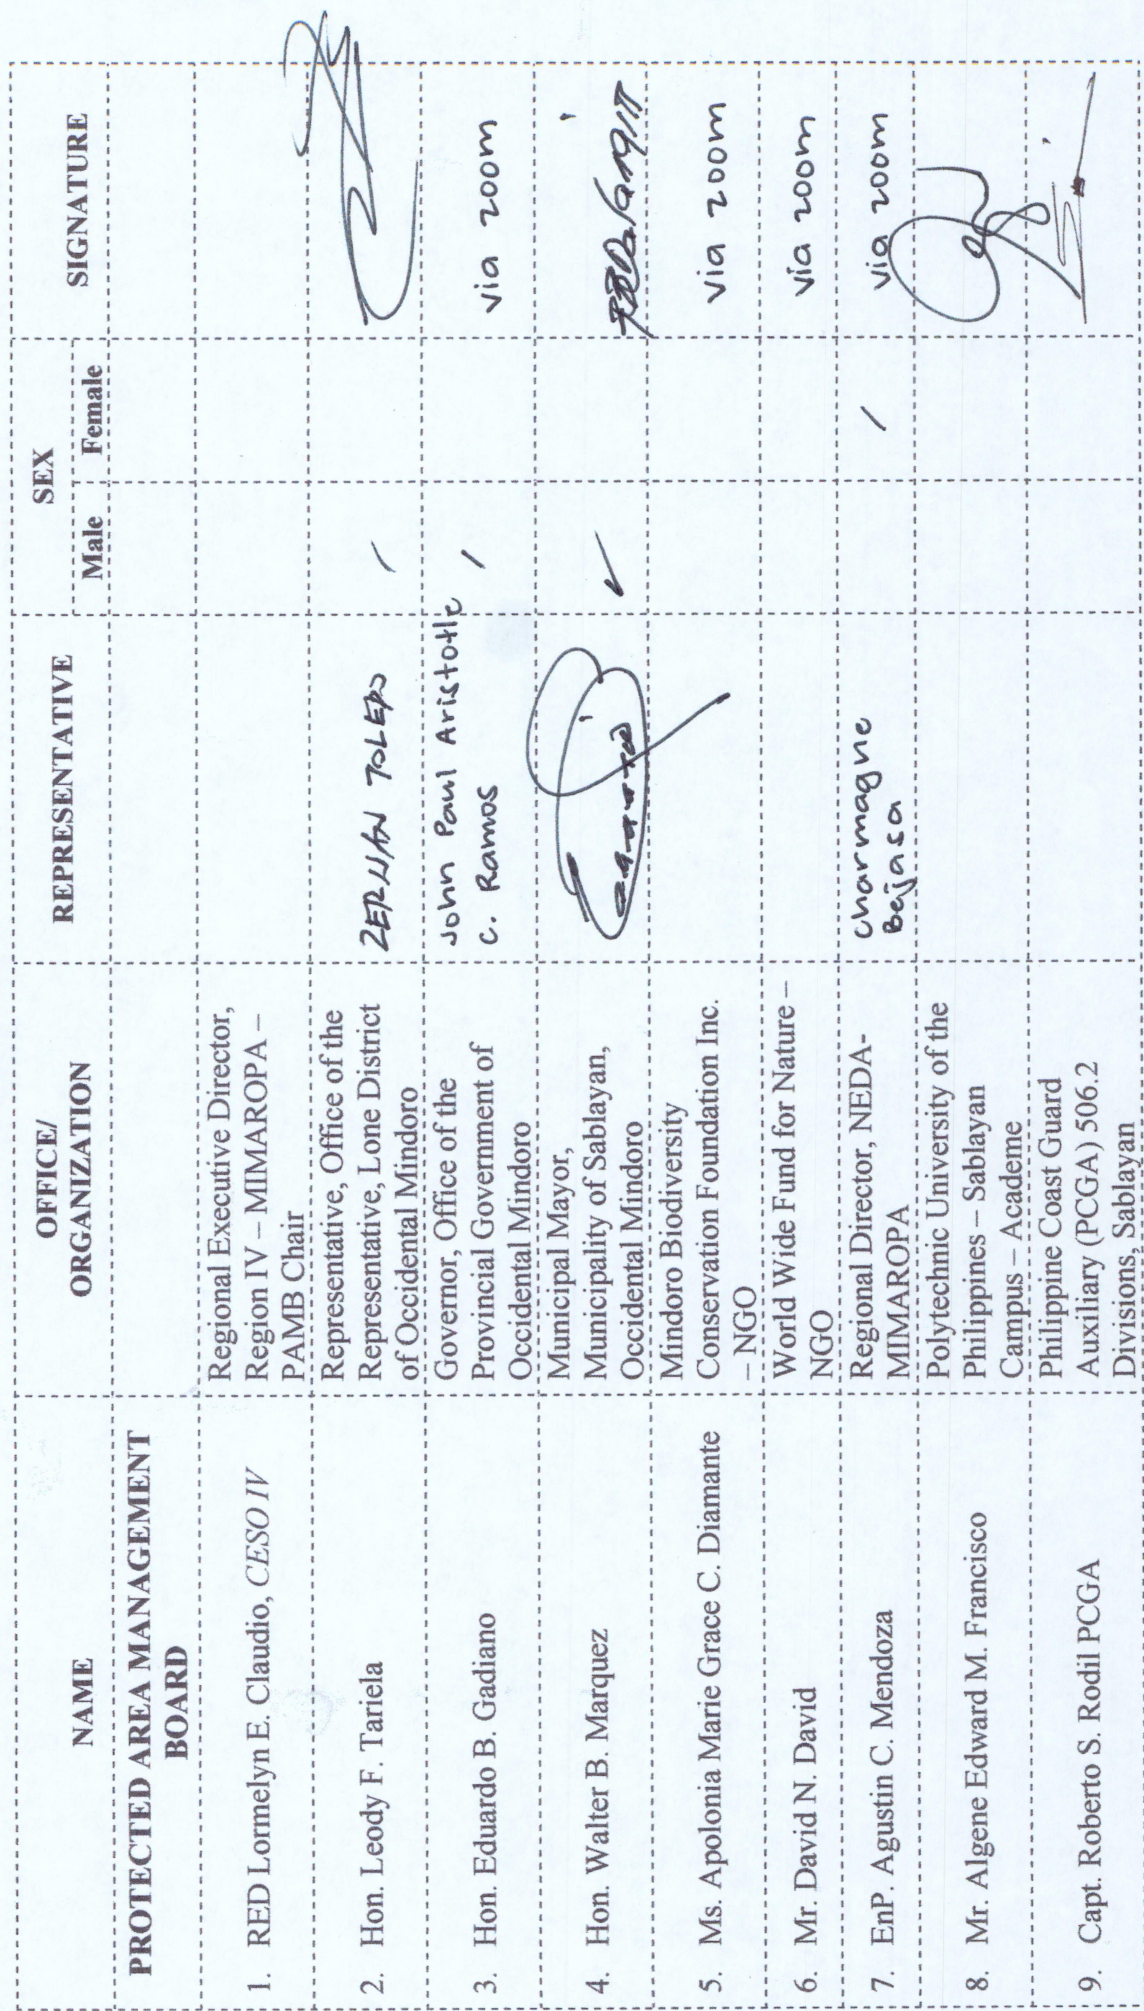 NAME
OFFICE/
ORGANIZATION
REPRESENTATIVE
SEX
Male
Female
SIGNATURE
PROTECTED AREA MANAGEMENT
BOARD
1. RED Lormelyn E. Claudio, CESO IV
Regional Executive Director,
Region IV – MIMAROPA –
PAMB Chair
2. Hon. Leody F. Tariela
Representative, Office of the
Representative, Lone District
of Occidental Mindoro
ZERNAN TOLEDO
3. Hon. Eduardo B. Gadiano
Governor, Office of the
Provincial Government of
Occidental Mindoro
John Paul Aristotle
C. Ramos
via zoom
4. Hon. Walter B. Marquez
Municipal Mayor,
Municipality of Sablayan,
Occidental Mindoro
5. Ms. Apolonia Marie Grace C. Diamante
Mindoro Biodiversity
Conservation Foundation Inc.
– NGO
via zoom
6. Mr. David N. David
World Wide Fund for Nature –
NGO
via zoom
7. EnP. Agustin C. Mendoza
Regional Director, NEDA-
MIMAROPA
Charmagne
Bejasa
via zoom
8. Mr. Algene Edward M. Francisco
Polytechnic University of the
Philippines – Sablayan
Campus – Academe
9. Capt. Roberto S. Rodil PCGA
Philippine Coast Guard
Auxiliary (PCGA) 506.2
Divisions, Sablayan